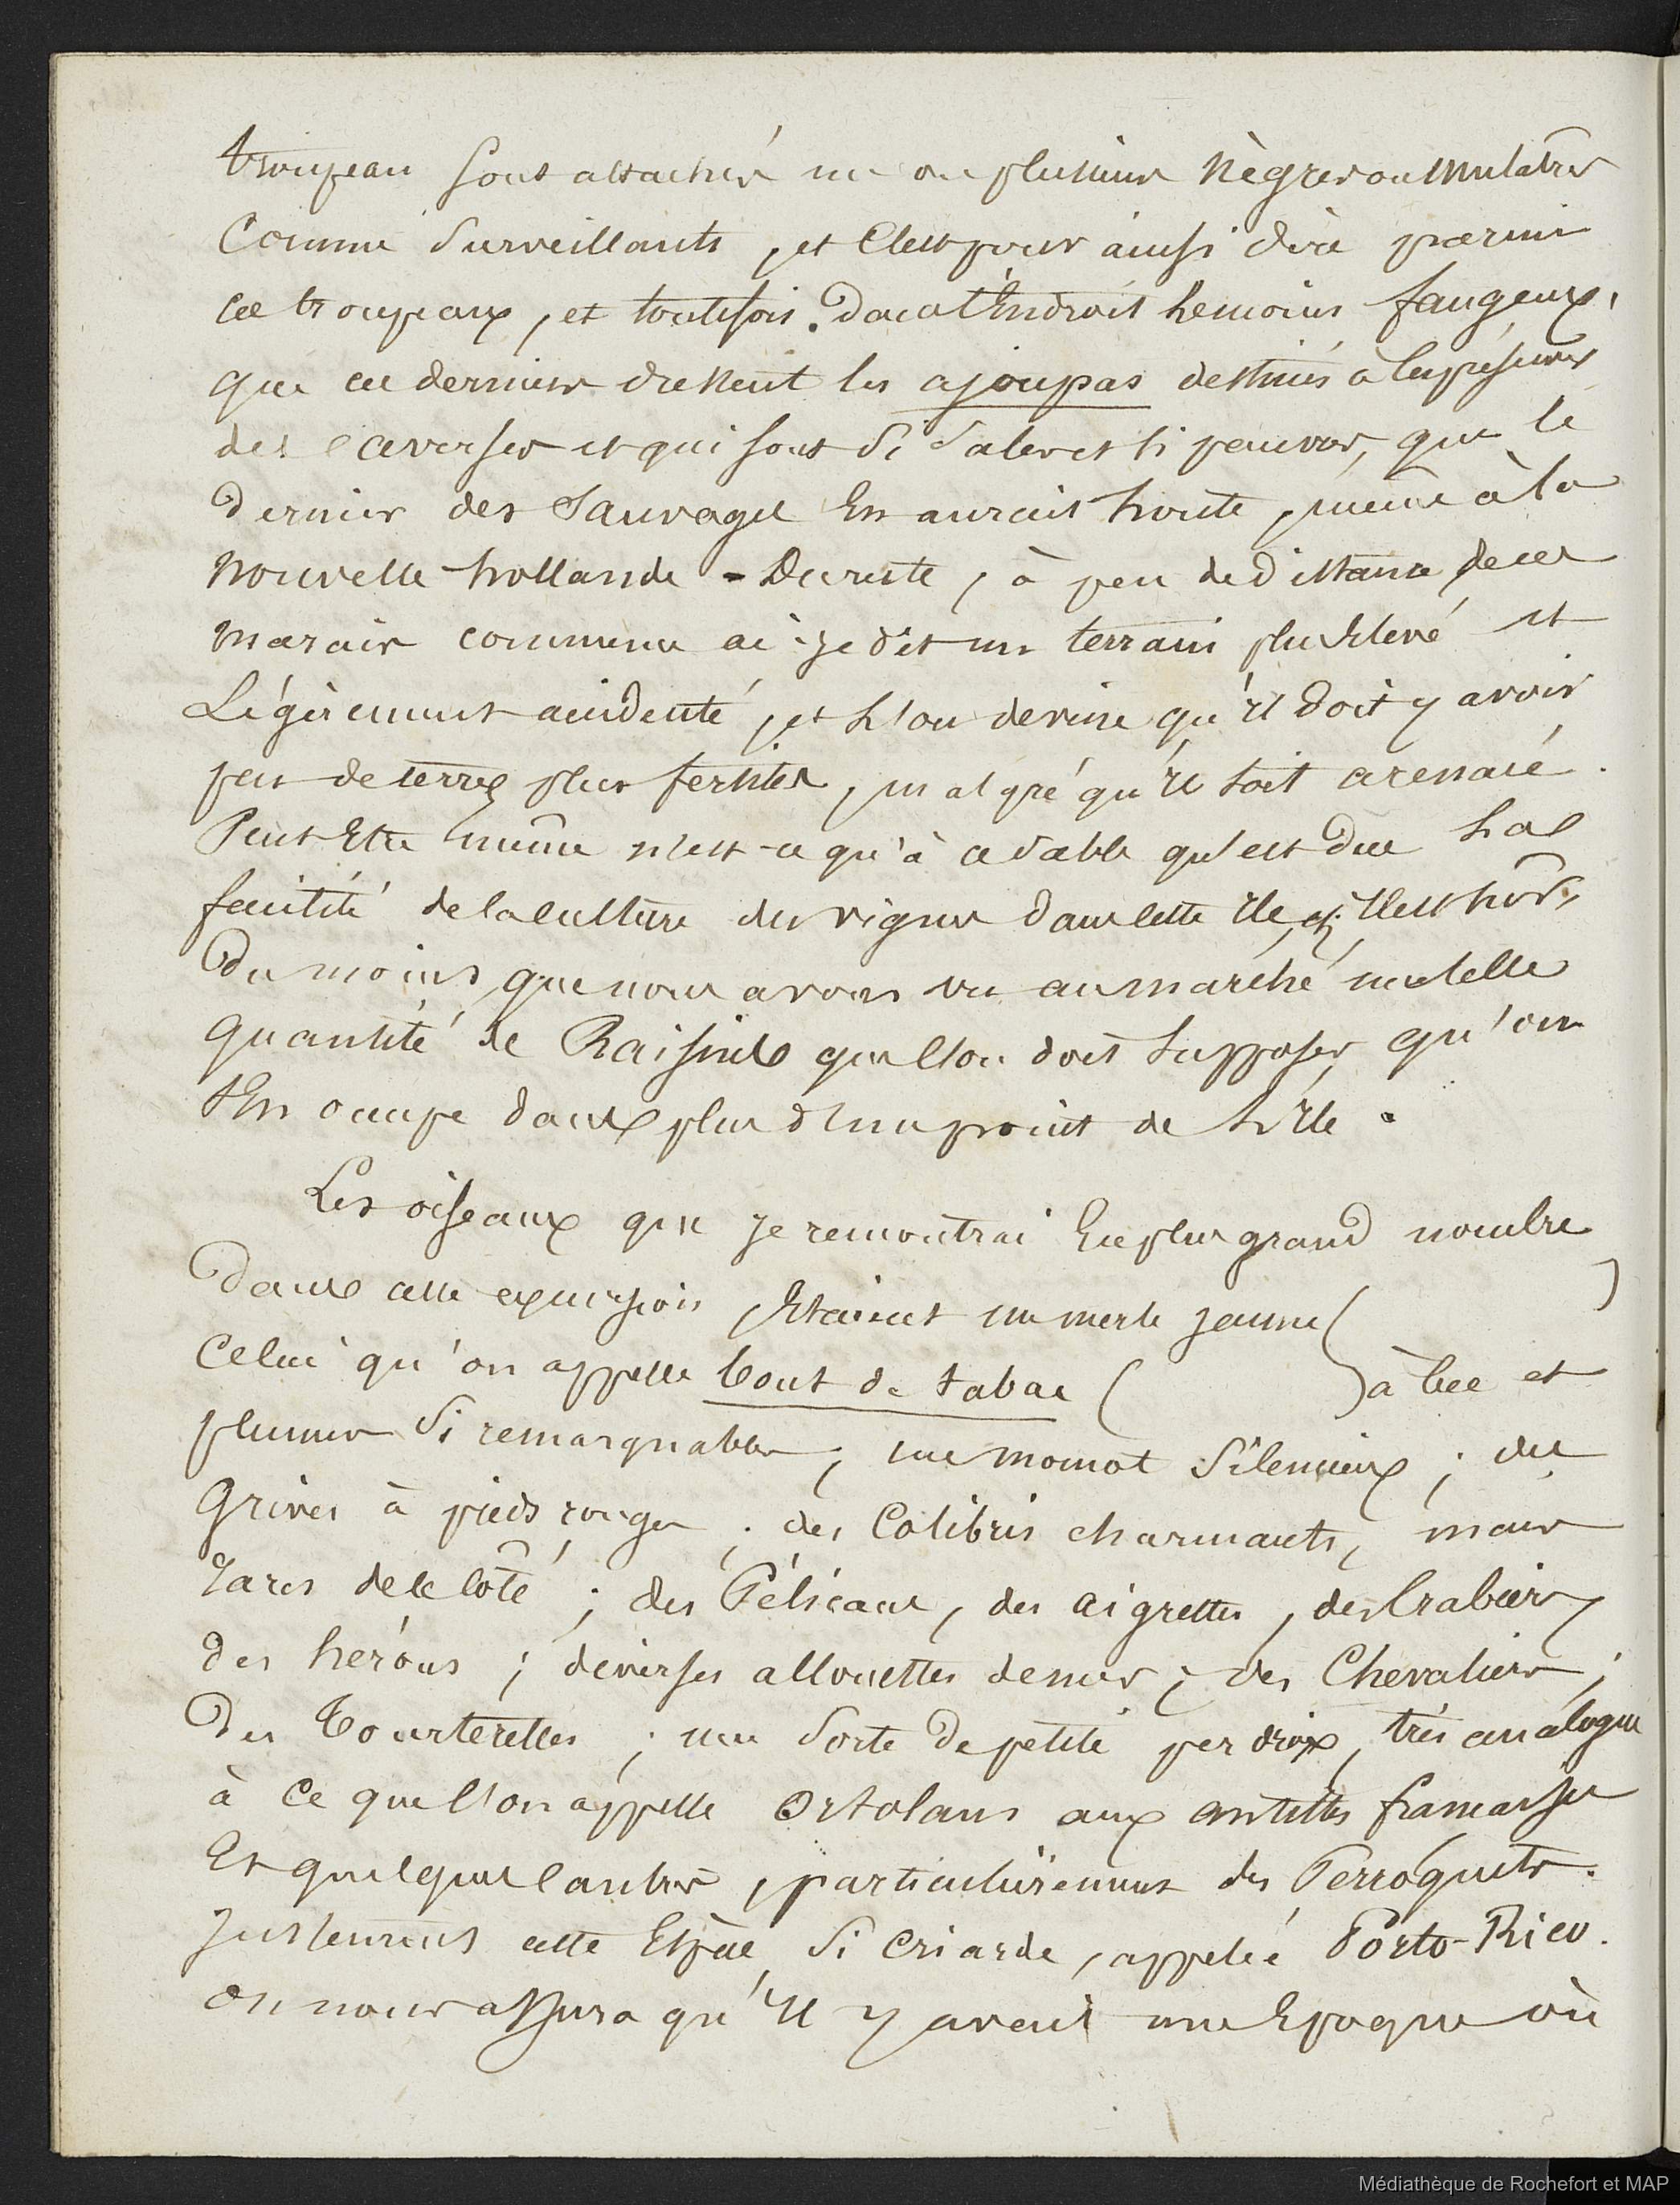 troupeau sont attachés un ou plusieurs Nègres ou Mulatres
Comme Surveillants, et C'est pour ainsi dire parmi
ces troupeaux, et toutefois dans l'Endroit le moins fangeux,
que ces derniers dressent les ajoupas destinés à les préserver
des averses et qui sont Si Sales et si pauvres, que le
dernier des Sauvages En aurait honte, même à la
Nouvelle hollande - Du reste, à peu de distance de ces
Marais commence ai-je dit un terrain plus Elevé et
Légèrement accidenté, et l'on devine qu'il doit y avoir
peu de terres plus fertiles, malgré qu'il soit arenacé.
Peut Etre même n'est-ce qu'à ce sable qu'est Due la
facilité de la culture des vignes dans cette île,
Du moins, que nous avons vu au marché une telle
quantité de Raisins que l'on doit supposer qu'on
s'En occupe dans plus d'un point de l'île.
Les oiseaux que je rencontrai En plus grand nombre
Dans cette excursion, Etaient un merle jaune ( )
Celui qu'on appelle bout de tabac ( ) à bec et
plumes Si remarquables; un momot Silencieux; des
Grives à pieds rouges; des Colibris charmants, mais
rares de ce côté; des Pélicans, des aigrettes, des Crabiers,
des hérons; diverses allouettes de mer; des Chevaliers;
Des Tourterelles; une Sorte De petite perdrix, très analogue
à Ce que l'on appelle Ortolans aux antilles françaises
Et quelques autres, particulièrement des Perroquets.
Justement cette Espèce Si Criarde, appelée Porto-Rico.
On nous assura qu'il y avait une Epoque où
Médiathèque de Rochefort et MAP